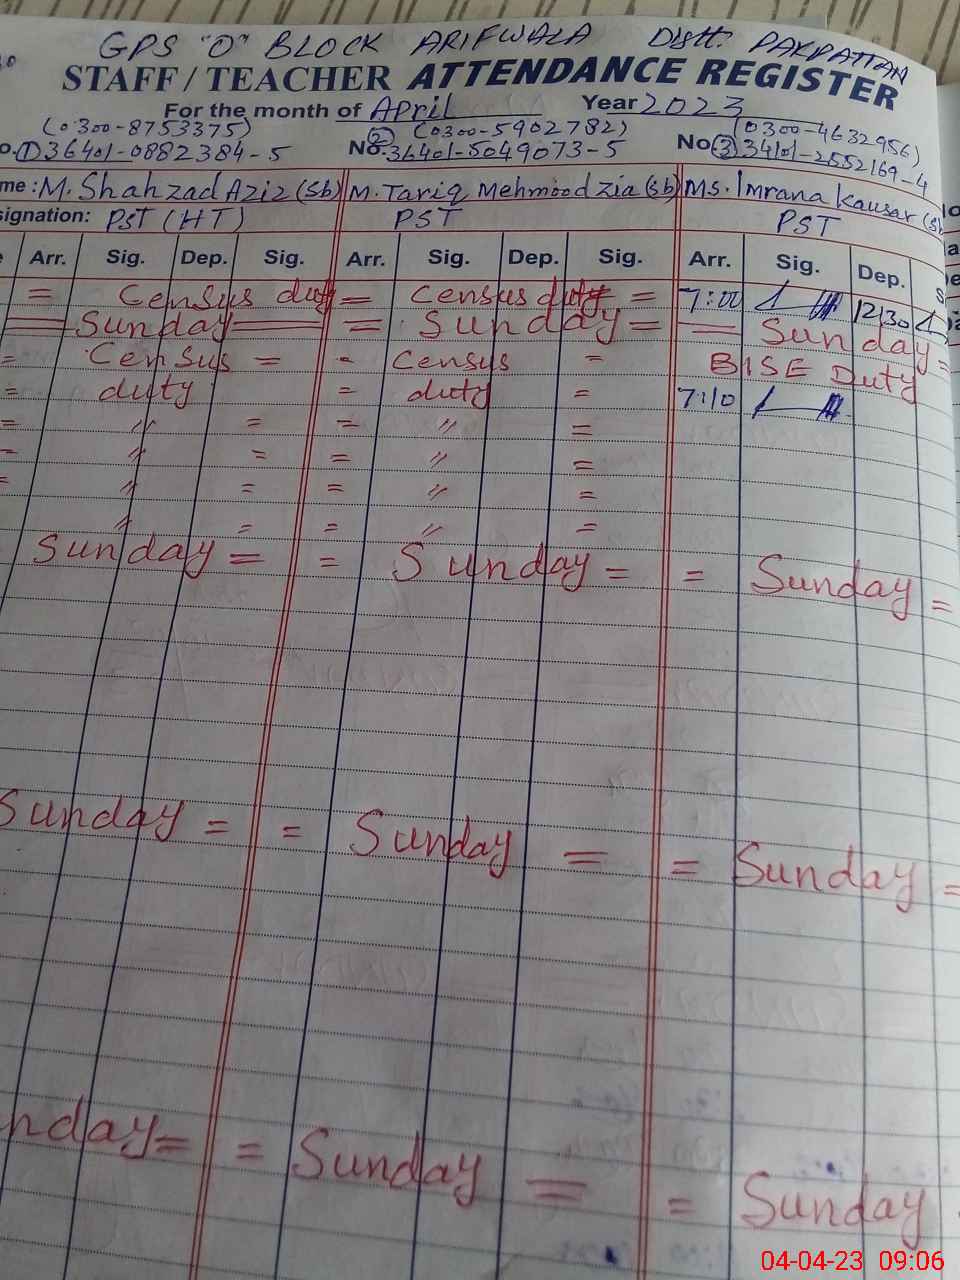 GPS "O" BLOCK ARIFWALA Distt. PAKPATTAN
STAFF / TEACHER ATTENDANCE REGISTER
For the month of April Year 2023
(0300-8753375) (0300-5902782) (0300-4632956)
o. ① 36401-0882384-5 No. ② 36401-5049073-5 No ③ 34101-2552169-4
me : M. Shahzad Aziz (Sb) M. Tariq Mehmood Zia (Sb) Ms. Imrana Kausar
signation: PST (HT) PST PST
Arr. Sig. Dep. Sig. Arr. Sig. Dep. Sig. Arr. Sig. Dep. S
= Census duty = Census duty = 7:00 12:30
Sunday = Sunday = Sunday =
= Census = - Census = BISE Duty
= duty = duty = 7:10
= 〃 = = 〃 =
= 〃 = = 〃 =
= 〃 = = 〃 =
〃 = = 〃 =
Sunday = = Sunday = = Sunday =
Sunday = = Sunday = = Sunday =
nday = = Sunday = = Sunday
04-04-23 09:06